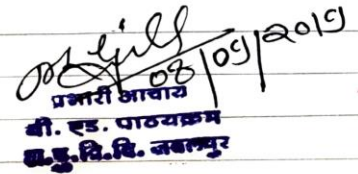 08/09/2019
प्रभारी आचार्य
बी. एड. पाठ्यक्रम
जबलपुर